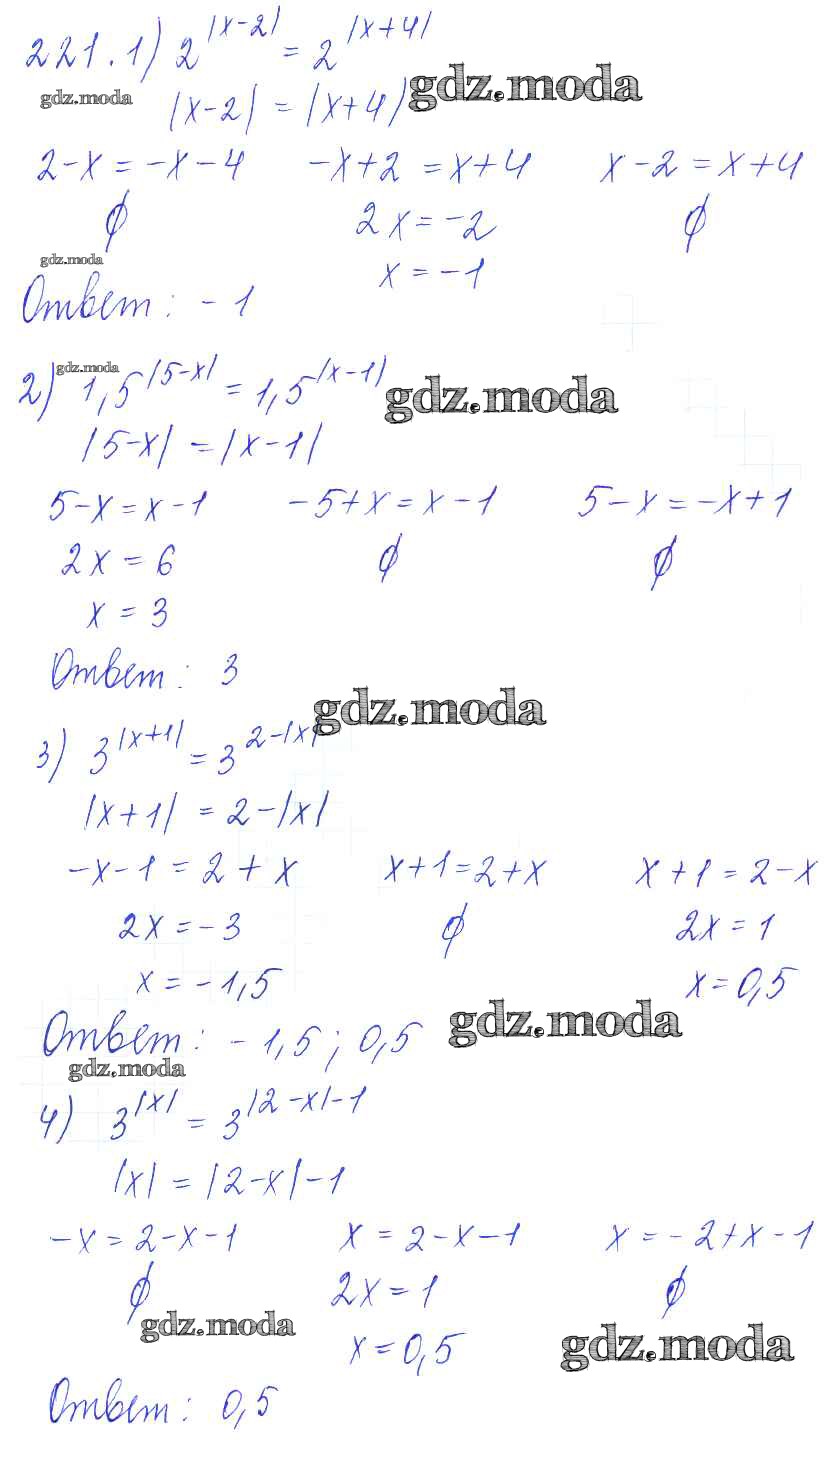 221. 1) 2^|x-2| = 2^|x+4|
gdz.moda
gdz.moda
|x-2| = |x+4|
2-x = -x-4 -x+2 = x+4 x-2 = x+4
∅ 2x = -2 ∅
gdz.moda
x = -1
Ответ: -1
gdz.moda
2) 1,5^|5-x| = 1,5^|x-1|
gdz.moda
|5-x| = |x-1|
5-x = x-1 -5+x = x-1 5-x = -x+1
2x = 6 ∅ ∅
x = 3
Ответ: 3
gdz.moda
3) 3^|x+1| = 3^2-|x|
|x+1| = 2-|x|
-x-1 = 2+x x+1 = 2+x x+1 = 2-x
2x = -3 ∅ 2x = 1
x = -1,5 x = 0,5
gdz.moda
Ответ: -1,5; 0,5
gdz.moda
4) 3^|x| = 3^|2-x|-1
|x| = |2-x|-1
-x = 2-x-1 x = 2-x-1 x = -2+x-1
∅ 2x = 1 ∅
gdz.moda
x = 0,5
gdz.moda
Ответ: 0,5